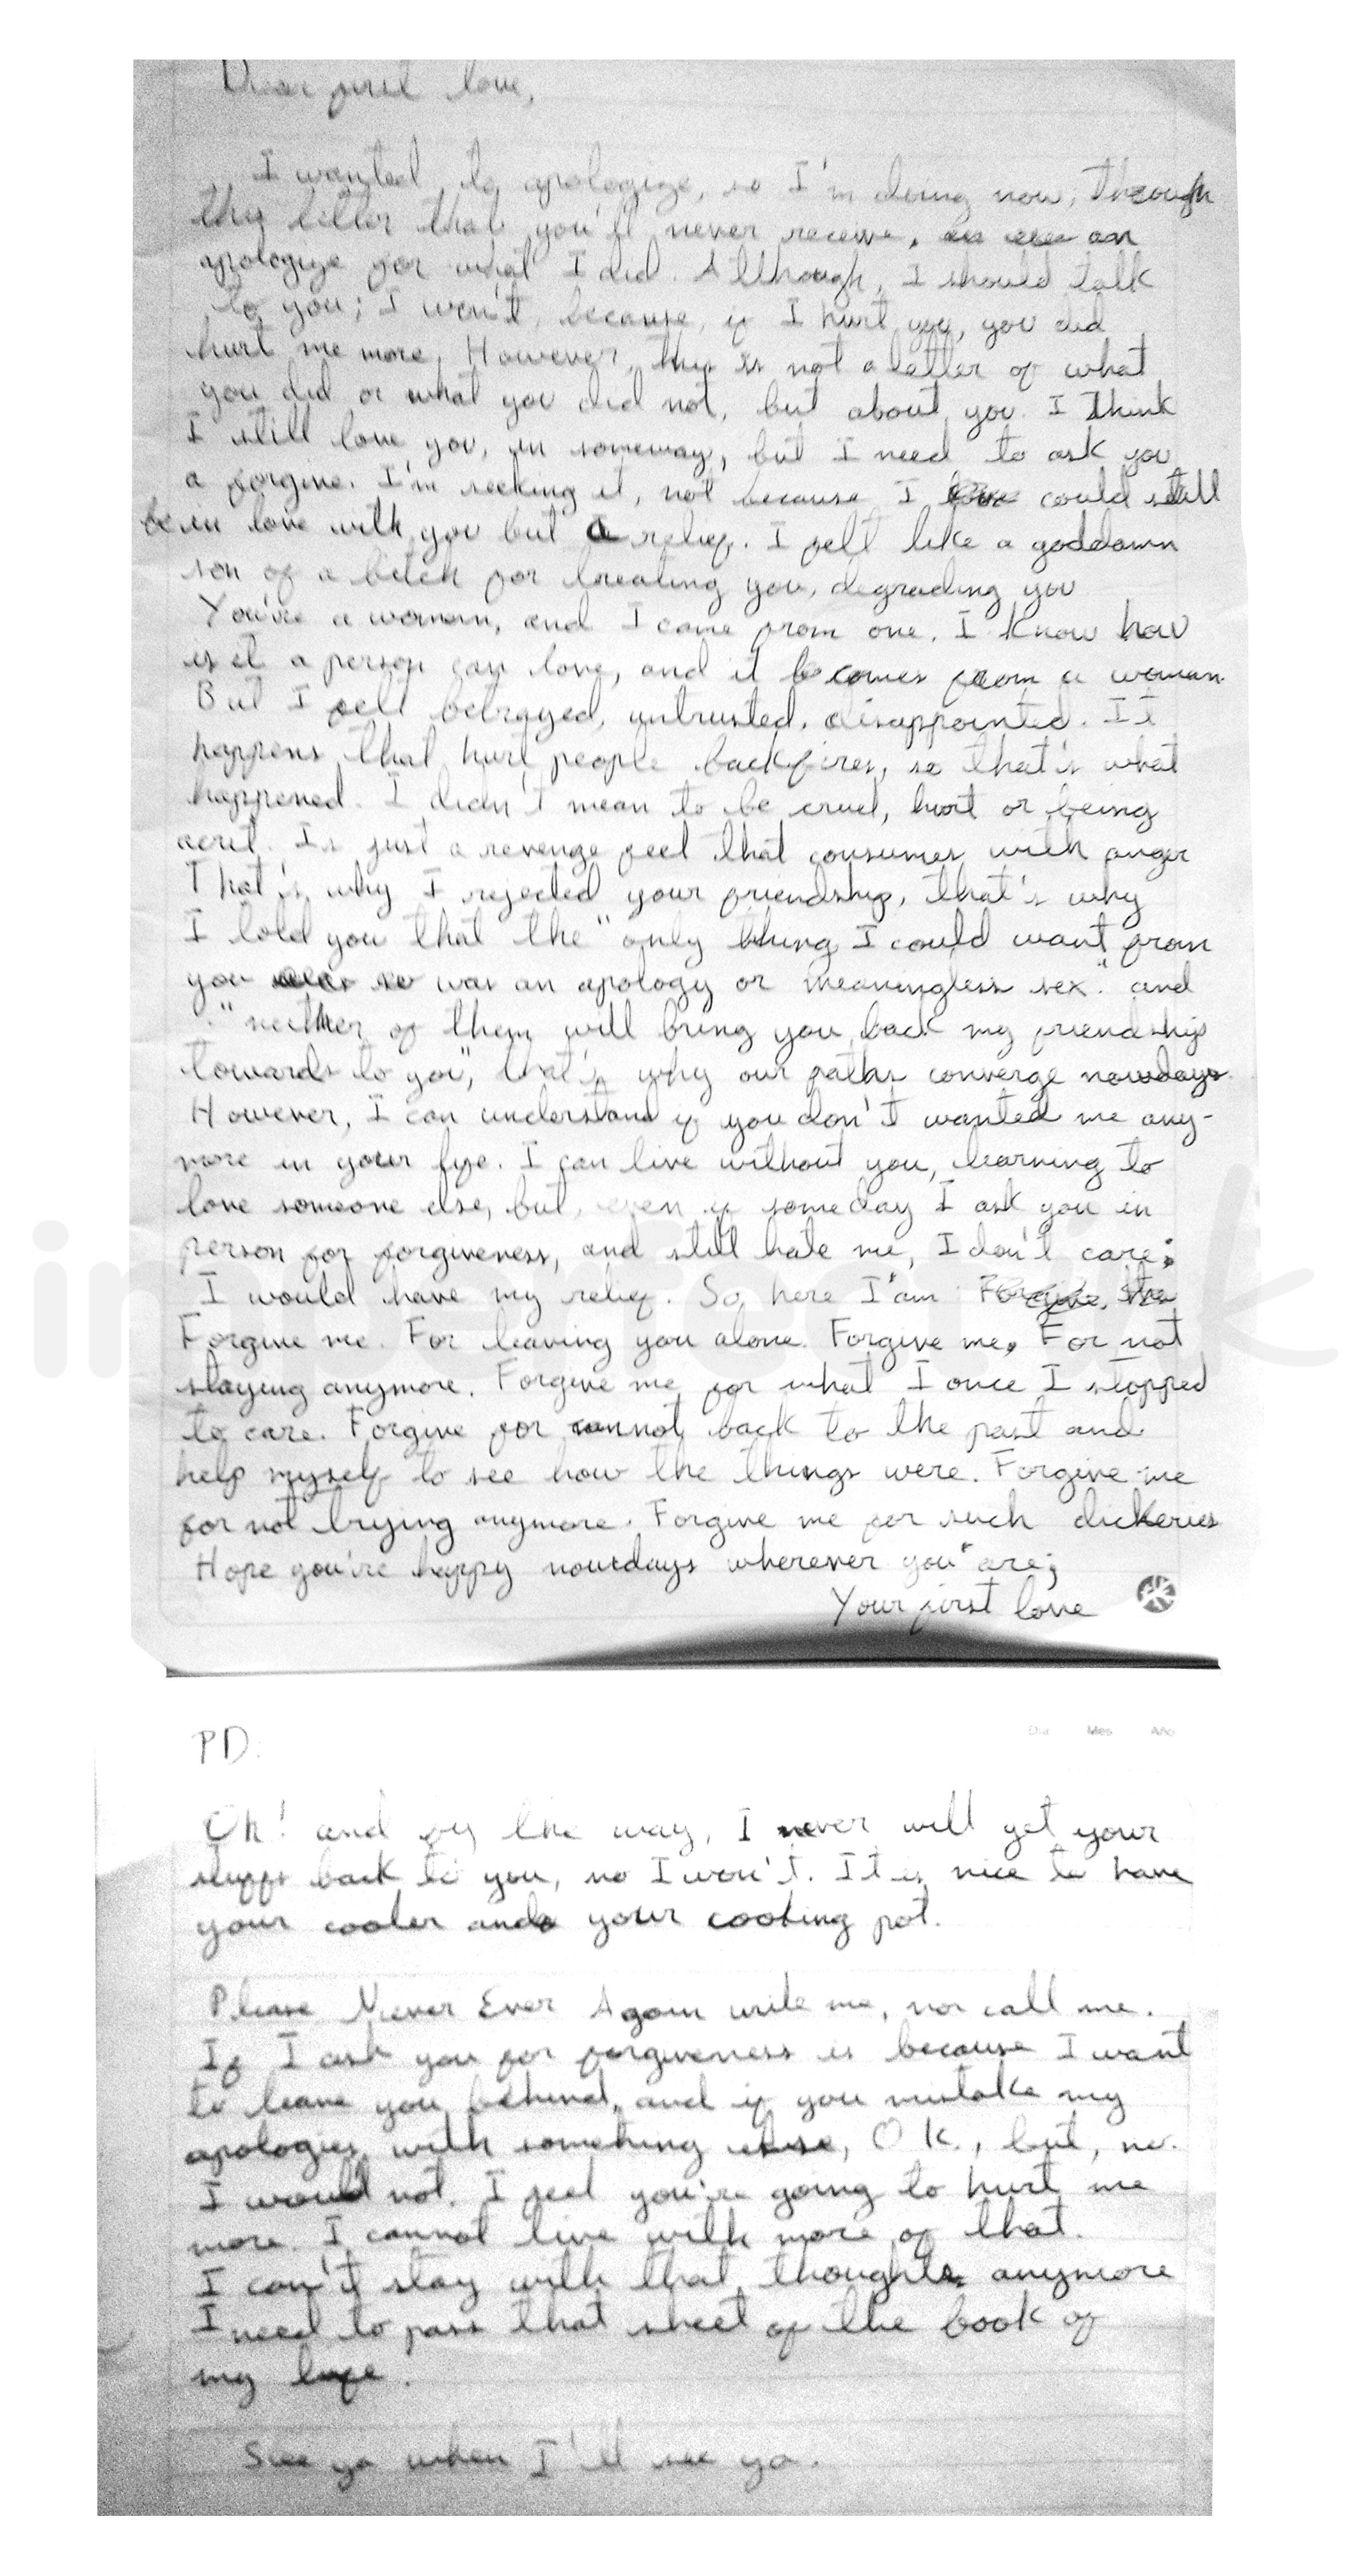 Dear first love,
I wanted to apologize, so I'm doing now, through
this letter that you'll never receive, an
apologize for what I did. Although, I should talk
to you; I won't, because, if I hurt you, you did
hurt me more. However, this is not a letter of what
you did or what you did not, but about you. I think
I still love you, in someway, but I need to ask you
a forgive. I'm seeking it, not because I could still
be in love with you but a relief. I felt like a goddamn
son of a bitch for treating you, degrading you
You're a woman, and I came from one. I know how
is it a person can love, and it comes from a woman.
But I felt betrayed, untrusted, disappointed. It
happens that hurt people backfires, so that's what
happened. I didn't mean to be cruel, hurt or being
Is just a revenge feel that consumes with anger
That's why I rejected your friendship, that's why
I told you that the "only thing I could want from
you was an apology or meaningless sex." and
"neither of them will bring you back my friendship
towards to you", that's why our paths converge nowdays.
However, I can understand if you don't wanted me any-
more in your life. I can live without you, learning to
love someone else, but, even if someday I ask you in
person for forgiveness, and still hate me, I don't care;
I would have my relief. So, here I am
Forgive me. For leaving you alone. Forgive me. For not
staying anymore. Forgive me for what I once I stopped
to care. Forgive for cannot back to the past and
help myself to see how the things were. Forgive me
for not trying anymore. Forgive me for such dickeries
Hope you're happy nowdays wherever you are;
Your first love
PD:
Día Mes Año
Oh! and by the way, I never will get your
stuffs back to you, no I won't. It is nice to have
your cooler and your cooking pot.
Please Never Ever Again write me, nor call me.
If I ask you for forgiveness is because I want
to leave you behind, and if you mistake my
apologies with something else, OK, but, no.
I would not. I feel you're going to hurt me
more. I cannot live with more of that.
I can't stay with that thoughts anymore
I need to pass that sheet of the book of
my life.
See ya when I'll see ya.